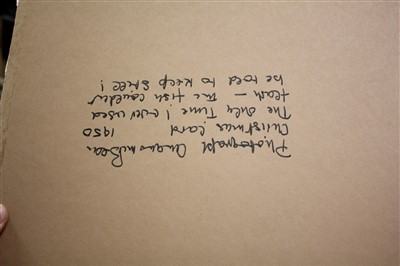 Photograph Angus McBean.
Christmas Card 1950
The only Time I ever used
flash – the fish couldn't
be told to keep still!